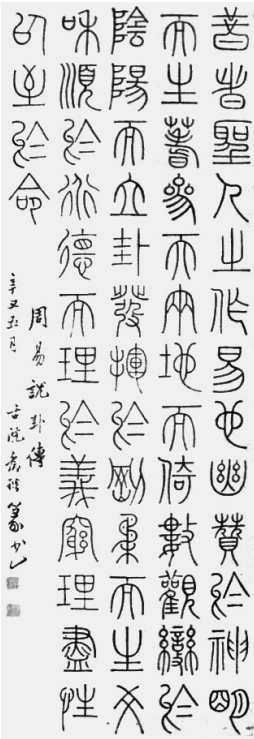 昔者聖人之作易也幽贊於神明
而生蓍參天兩地而倚數觀變於
陰陽而立卦發揮於剛柔而生爻
和順於道德而理於義窮理盡性
以至於命
周易說卦傳
辛丑五月 篆